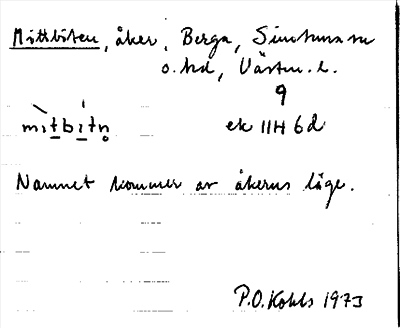 Mittbiten, åker, Berga, Simtuna sn
o. hd, Västm. l.
9
mitbitn ek 11H 6d
Namnet kommer av åkerns läge.
P.O. Kohls 1973